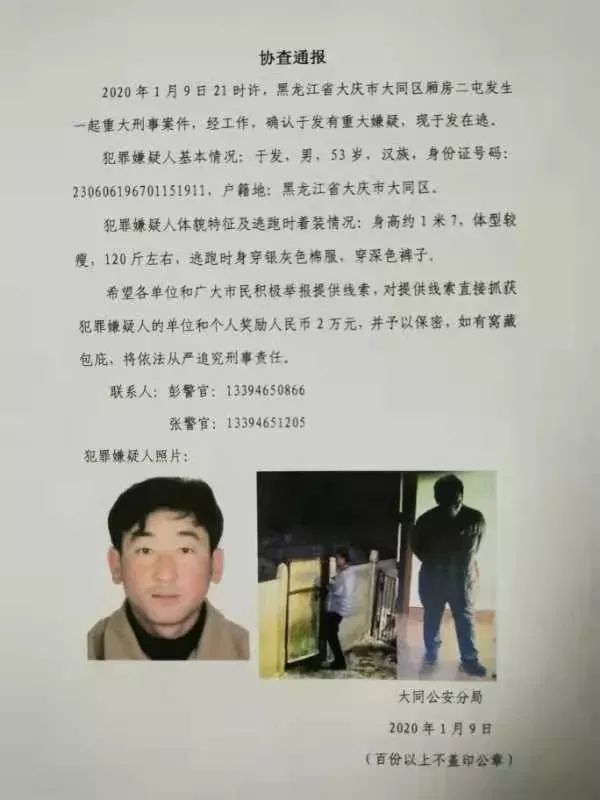 协查通报
2020年1月9日21时许，黑龙江省大庆市大同区厢房二屯发生
一起重大刑事案件，经工作，确认于发有重大嫌疑，现于发在逃。
犯罪嫌疑人基本情况：于发，男，53岁，汉族，身份证号码：
230606196701151911，户籍地：黑龙江省大庆市大同区。
犯罪嫌疑人体貌特征及逃跑时着装情况：身高约1米7，体型较
瘦，120斤左右，逃跑时身穿银灰色棉服，穿深色裤子。
希望各单位和广大市民积极举报提供线索，对提供线索直接抓获
犯罪嫌疑人的单位和个人奖励人民币2万元，并予以保密，如有窝藏
包庇，将依法从严追究刑事责任。
联系人：彭警官：13394650866
张警官：13394651205
犯罪嫌疑人照片：
大同公安分局
2020年1月9日
（百份以上不盖印公章）